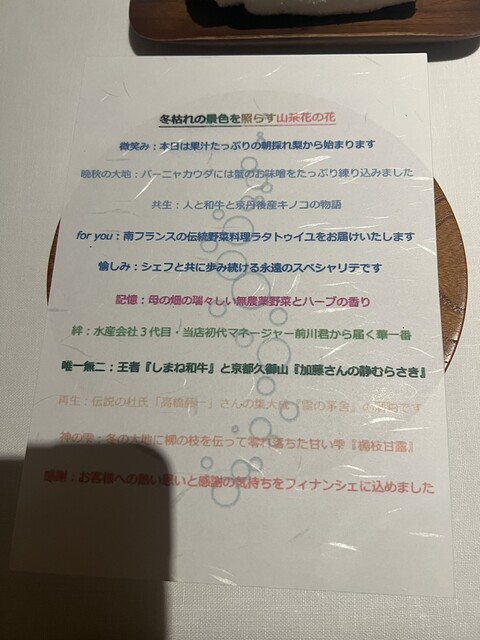 冬枯れの景色を照らす山茶花の花
微笑み：本日は果汁たっぷりの朝採れ梨から始まります
晩秋の大地：バーニャカウダには蟹のお味噌をたっぷり練り込みました
共生：人と和牛と京丹後産キノコの物語
for you：南フランスの伝統野菜料理ラタトゥイユをお届けいたします
愉しみ：シェフと共に歩み続ける永遠のスペシャリテです
記憶：母の畑の瑞々しい無農薬野菜とハーブの香り
絆：水産会社３代目・当店初代マネージャー前川君から届く華一番
唯一無二：王者『しまね和牛』と京都久御山『加藤さんの静むらさき』
再生　伝説の杜氏「高橋藤一」さんの集大成『雪の茅舎』の酒粕です
神の雫：冬の大地に柳の枝を伝って零れ落ちた甘い雫『楊枝甘露』
感謝：お客様への熱い思いと感謝の気持ちをフィナンシェに込めました